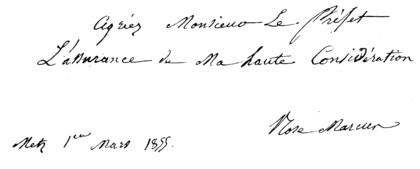 Agriéz Monsieur Le Préfet
L'assurance de Ma haute Considération
Rose Marcus
Metz 1er Mars 1855.